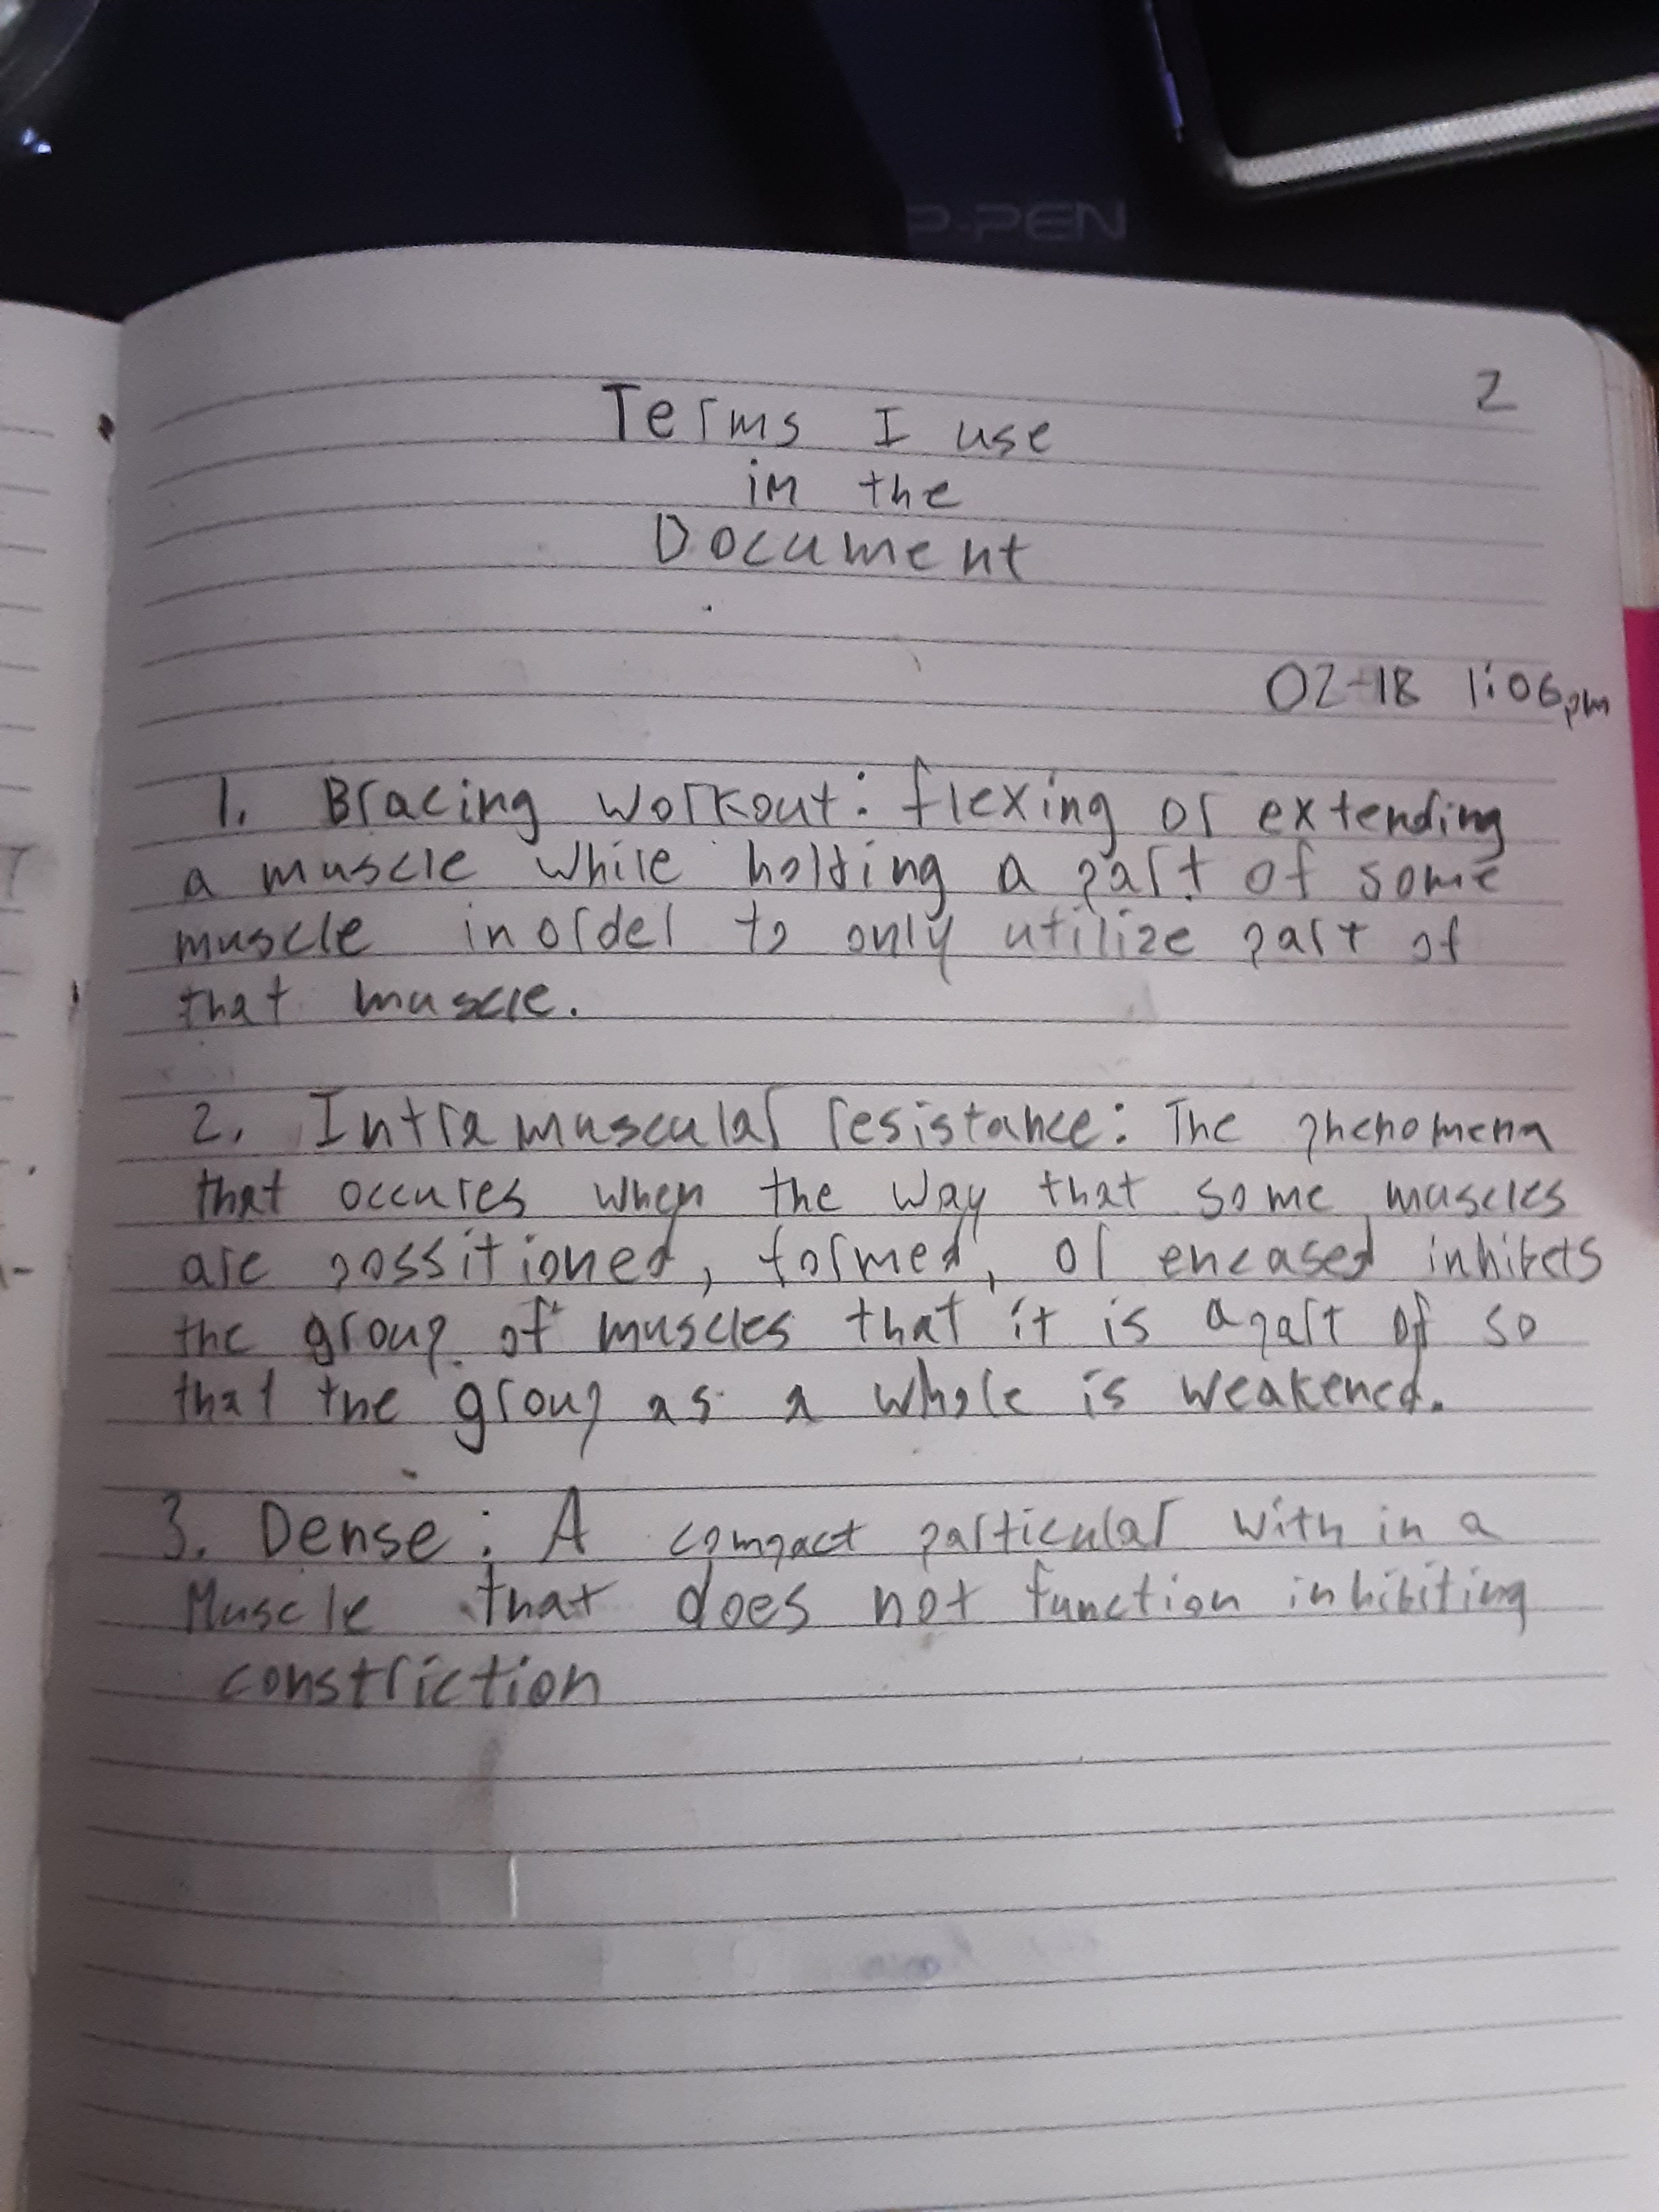 P-PEN
2
Terms I use
in the
Document
02-18 1:06pm
1. Bracing workout: flexing or extending
a muscle while holding a part of some
muscle inorder to only utilize part of
that muscle.
2. Intra muscular resistance: The phenomena
that occures when the way that some muscles
are possitioned, formed, or encased inhibets
the group of muscles that it is apart of so
that the group as a whole is weakened.
3. Dense: A compact particular with in a
Muscle that does not function inhibiting
constriction